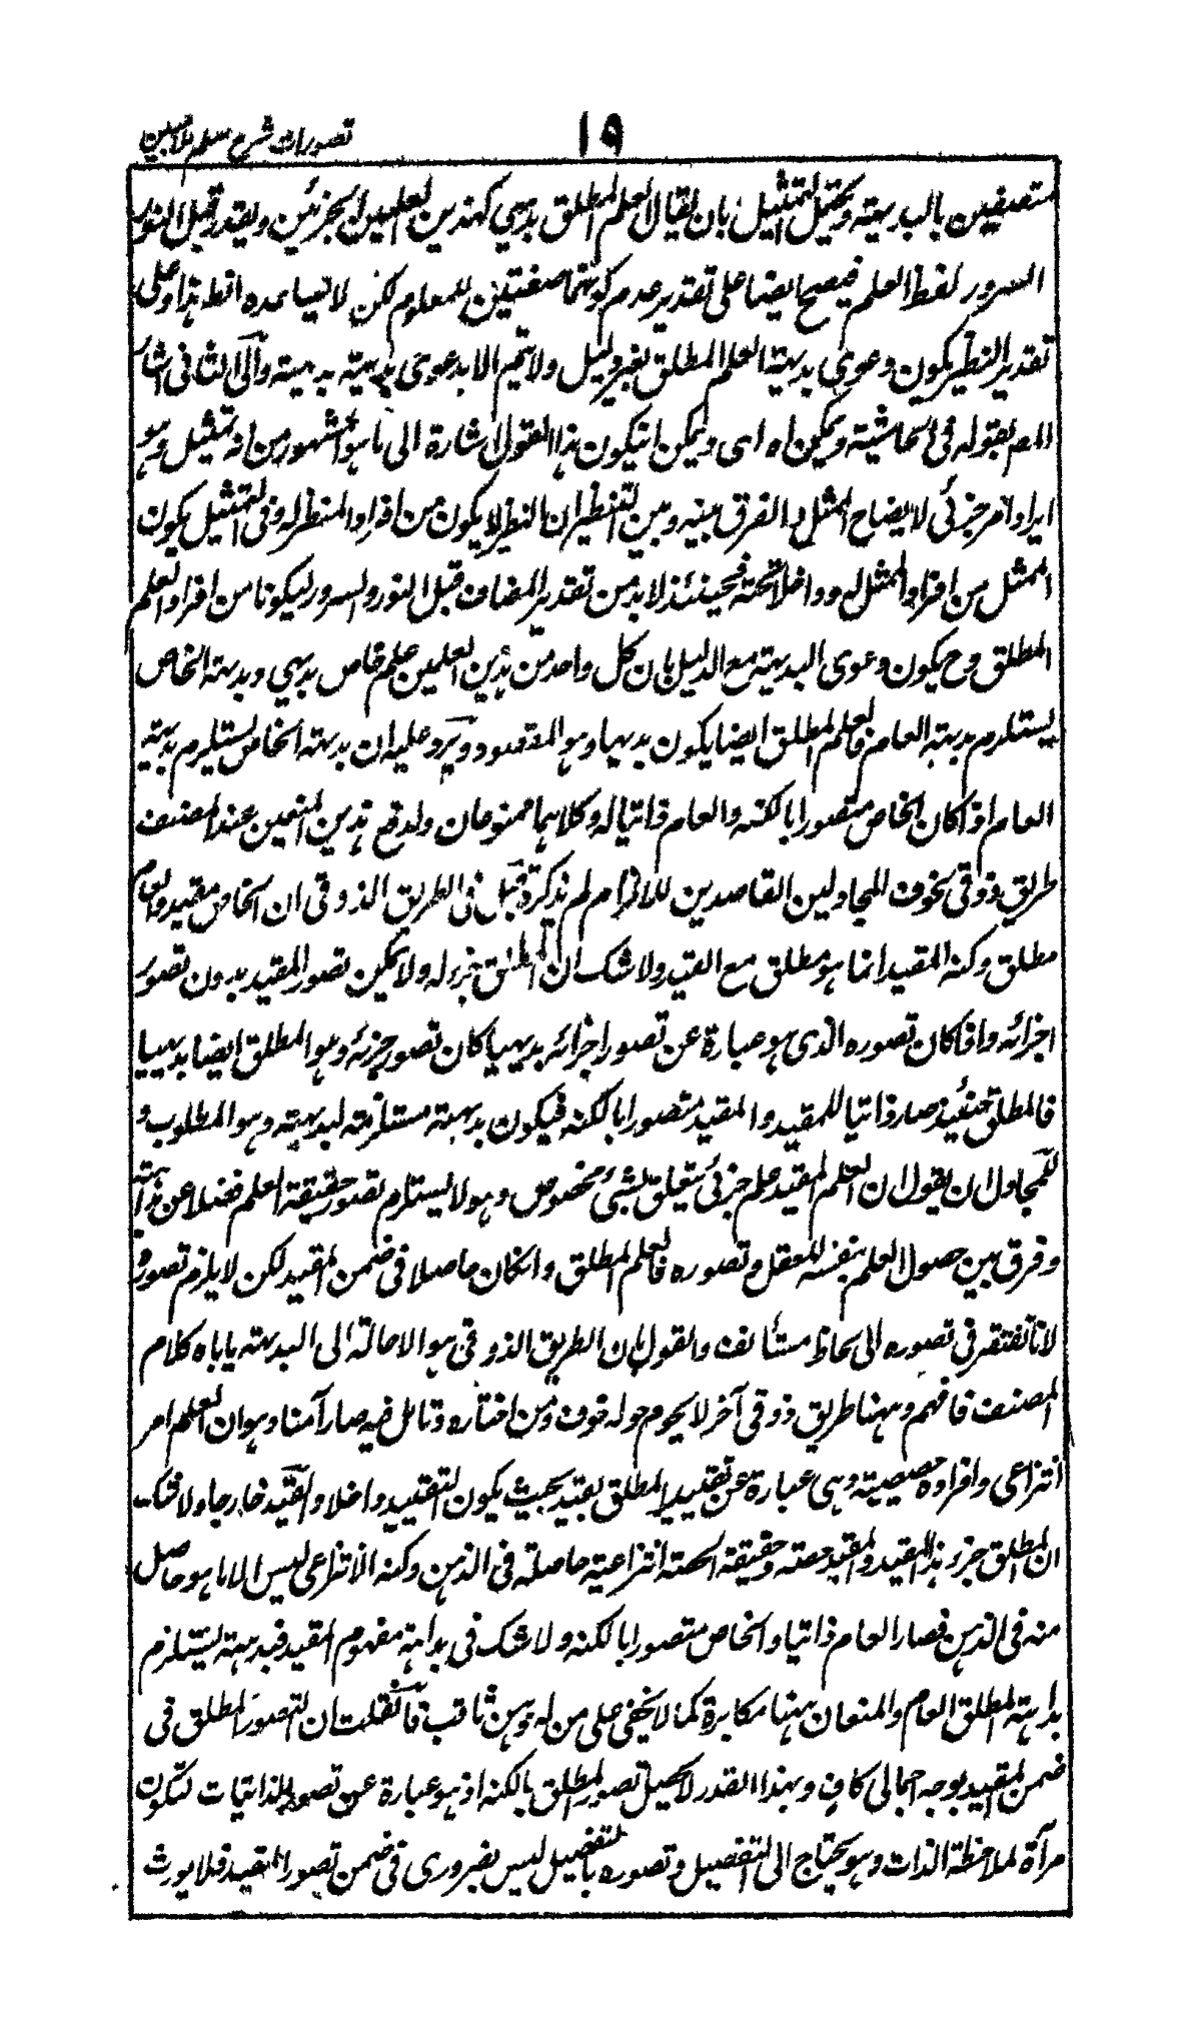 ١٩
تصورات شرح سلم ملا مبين
متصفين بالبديهة ويحتمل التمثيل بان يقال العلم المطلق بديهي كهذين العلمين الجزئين ويقدر قبل النور
السرور لفظ العلم فيصح ايضا على تقدير عدم كونهما صفتين للمعلوم لكن لا يساعده انظ هذا وعلى
تقدير النظير يكون دعوى بديهة العلم المطلق بغير دليل ولا يتم الا بدعوى بديهة بديهيته والى الثانى اشار
المص بقوله فى الحاشية ويمكن اه اى ويمكن ان يكون هذا القول اشارة الى ما هو المشهور من انه تمثيل وهو
ايراد امر جزئى لايضاح الممثل والفرق بينه وبين التنظير ان النظير لا يكون من افراد المنظر له وفى التمثيل يكون
الممثل من افراد الممثل له وداخلا تحته فحينئذ لا بد من تقدير المضاف قبل النور والسرور ليكونا من افراد العلم
المطلق وح يكون دعوى البديهة مع الدليل بان كل واحد من هذين العلمين علم خاص بديهي وبديهة الخاص
يستلزم بديهة العام فالعلم المطلق ايضا يكون بديهيا وهو المقصود ويرد عليه ان بديهة الخاص يستلزم بديهة
العام اذا كان الخاص متصورا بالكنه والعام ذاتيا له وكلاهما ممنوعان ولدفع هذين المنعين عند المصنف
طريق ذوقى يخوف للمجادلين القاصدين للالزام لم يذكره قيل فى الطريق الذوقى ان الخاص مقيد والعام
مطلق وكنه المقيد انما هو مطلق مع القيد ولا شك ان المطلق جزء له ولا يمكن تصور المقيد بدون تصور
اجزائه واذا كان تصوره الذى هو عبارة عن تصور اجزائه بديهيا كان تصور جزئه وهو المطلق ايضا بديهيا
فالمطلق حينئذ صار ذاتيا للمقيد والمقيد متصورا بالكنه فيكون بديهته مستلزمة لبديهيته وهو المطلوب و
للمجادل ان يقول ان العلم المقيد علم جزئى متعلق بشئ مخصوص وهو لا يستلزم تصور حقيقة العلم فضلا عن بداهته
وفرق بين حصول العلم بنفسه للعقل وتصوره فالعلم المطلق وان كان حاصلا فى ضمن المقيد لكن لا يلزم تصوره
لانا نفتقر فى تصوره الى لحاظ مستأنف والقول بان الطريق الذوقى هو الاحالة الى البديهة ياباه كلام
المصنف فافهم وههنا طريق ذوقى آخر لا يحوم حوله خوف ومن اختاره وتامل فيه صار آمنا وهو ان العلم امر
انتزاعى وافراده حصصية وهى عبارة عن تقييد المطلق بقيد بحيث يكون التقييد داخلا والقيد خارجا ولا شك
ان المطلق جزء هذا المقيد والمقيد حصته وحقيقة الحصة انتزاعية حاصلة فى الذهن وكنه الانتزاعى ليس الا ما هو حاصل
منه فى الذهن فصار العام ذاتيا والخاص متصورا بالكنه ولا شك فى بداهة مفهوم المقيد فبديهته يستلزم
بداهة المطلق العام والمنعان ههنا مكابرة كما لا يخفى على من له ذهن ثاقب فان قلت ان التصور المطلق فى
ضمن المقيد بوجه اجمالى كاف وبهذا القدر لا يحصل تصور المطلق بالكنه اذ هو عبارة عن تصور الذاتيات لتكون
مرآة لملاحظة الذات وهو يحتاج الى التفصيل وتصوره بالتفصيل ليس بضرورى فى ضمن تصور المقيد فلا يورث